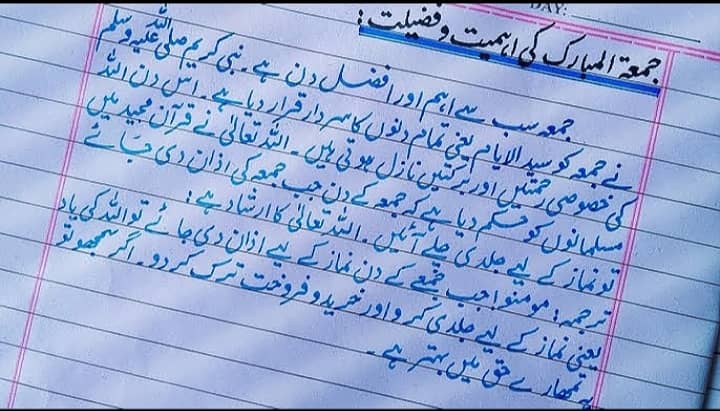 DAY:
جمعۃ المبارک کی اہمیت و فضیلت:
جمعہ سب سے اہم اور افضل دن ہے۔ نبی کریم صلی اللہ علیہ وسلم
نے جمعہ کو سید الایام یعنی تمام دنوں کا سردار قرار دیا ہے۔ اس دن اللہ
کی خصوصی رحمتیں اور برکتیں نازل ہوتی ہیں۔ اللہ تعالیٰ نے قرآن مجید میں
مسلمانوں کو حکم دیا ہے کہ جمعہ کے دن جب جمعہ کی اذان دی جائے
تو نماز کے لیے جلدی چلے آئیں۔ اللہ تعالیٰ کا ارشاد ہے:
ترجمہ: مومنو! جب جمعے کے دن نماز کے لیے اذان دی جائے تو اللہ کی یاد
یعنی نماز کے لیے جلدی کرو اور خرید و فروخت ترک کر دو۔ اگر سمجھو تو
یہ تمھارے حق میں بہتر ہے۔